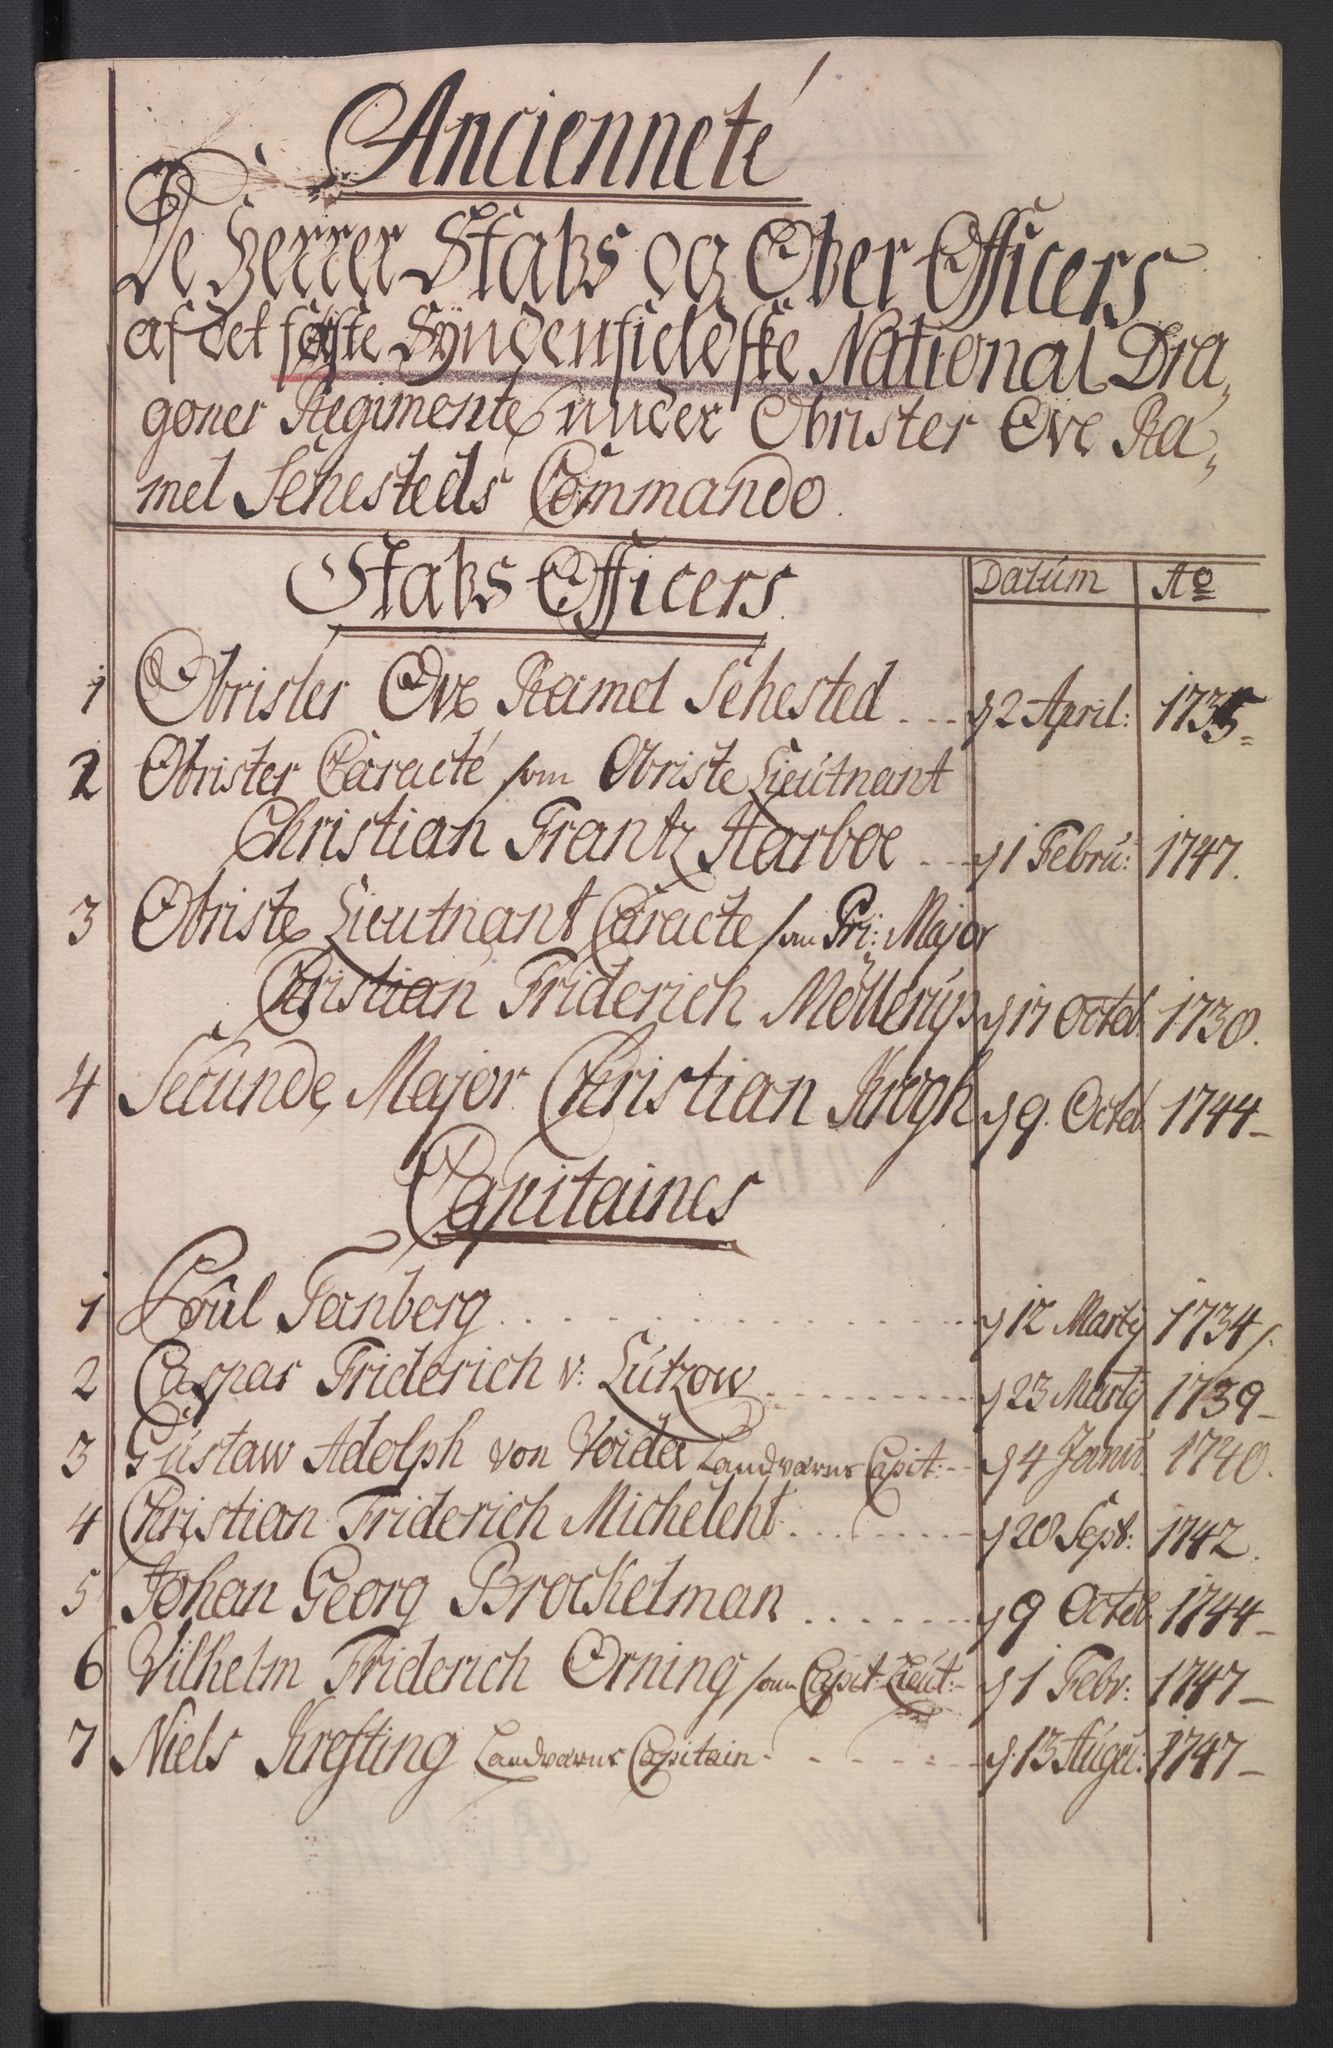 Ancienneté
De Herrer Stabs og Ober Officers
af det første Syndenfieldske National Dra„
goner Regimente under Obrister Ove Ra„
mel Sehesteds Commando.
Stabs Officers. Datum Ao
1 Obrister Ove Ramel Sehested d 2 April: 1735
2 Obrister Caracté som Obriste Lieutnant
Christian Frantz Harboe d 1 Febru: 1747.
3 Obriste Lieutnant Caracte som Pri: Major
Christian Friderich Möllerup d 17 Octob 1730.
4 Secunde Major Christian Krogh d 9. Octob 1744
Capitaines
1 Poul Fanberg d 12 Marty 1734
2 Caspar Friderich v: Lützow d 23 Marty 1739
3 Gustaw Adolph von Woida Landværns Capit: d 4 Janu 1740.
4 Christian Friderich Micheleht d 28 Sept: 1742.
5 Johan Georg Brockelman d 9 Octob 1744
6 Vilhelm Friderich Orning som Capit: Lieut: d 1 Febr: 1747
7 Niels Krefting Landværns Capitain d. 13 Augu: 1747